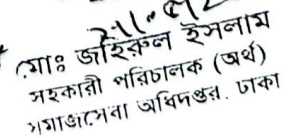 মোঃ জহিরুল ইসলাম
সহকারী পরিচালক (অর্থ)
সমাজসেবা অধিদপ্তর. ঢাকা